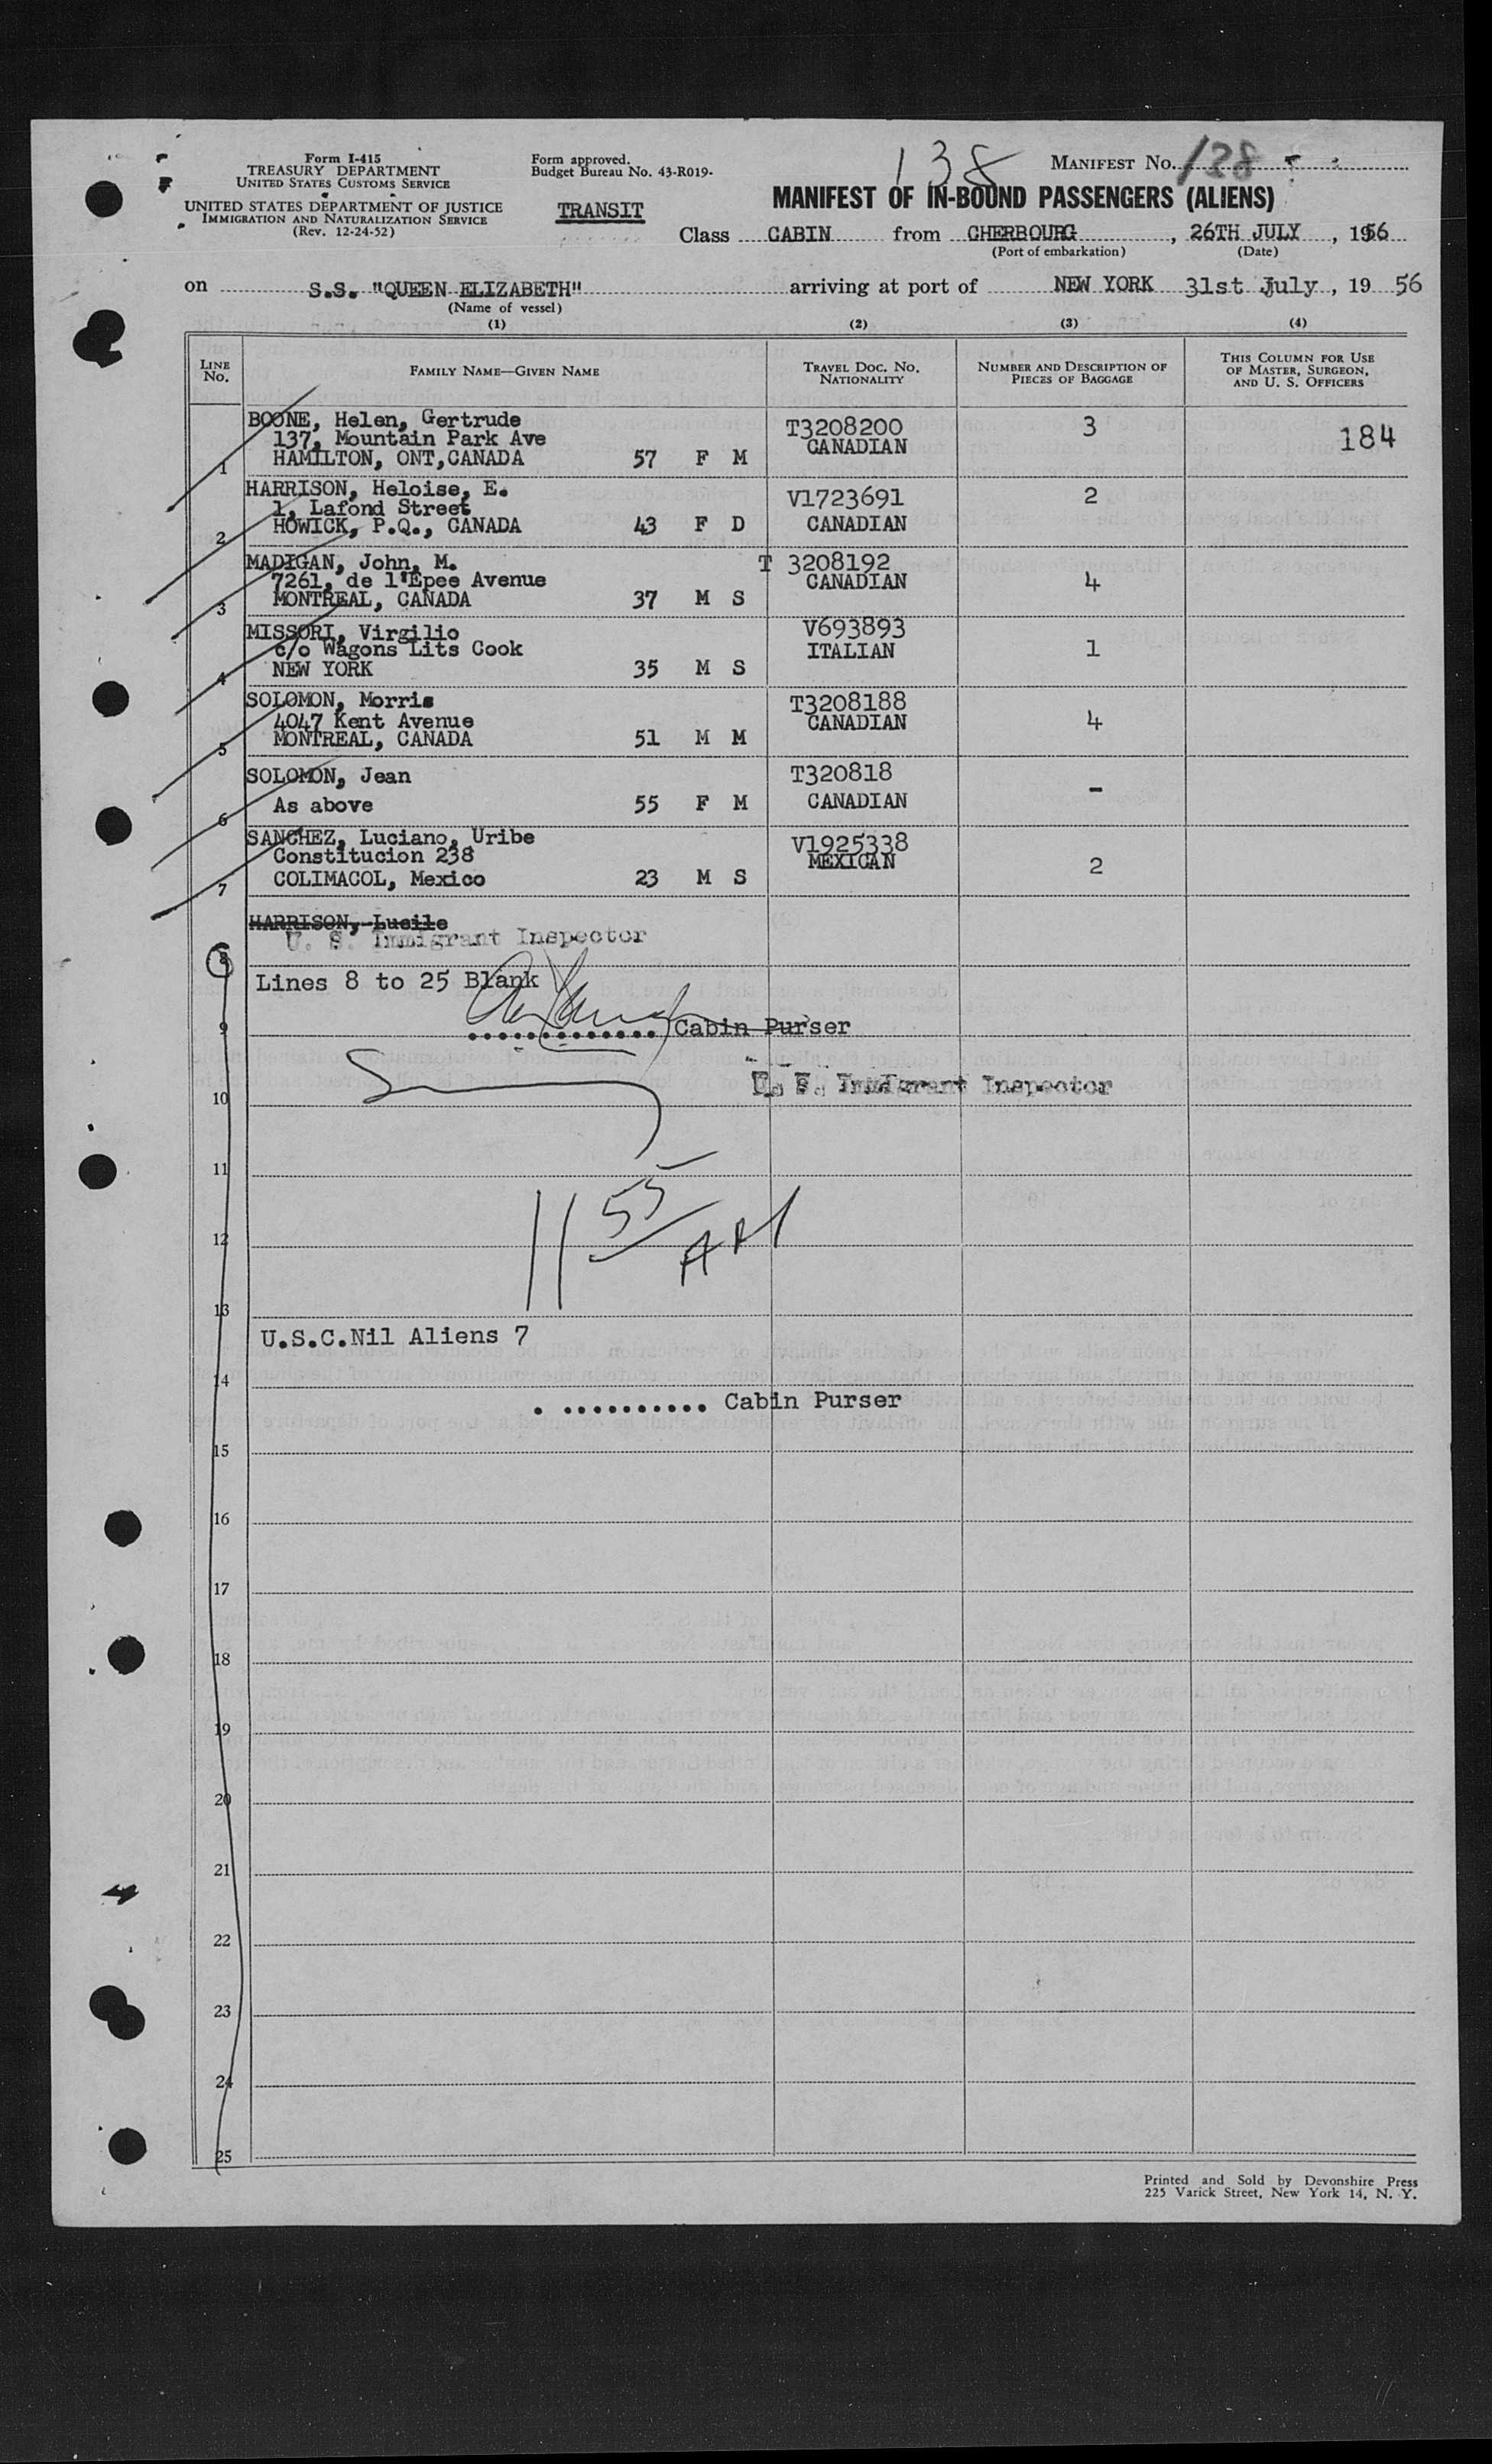 Form I-415
TREASURY DEPARTMENT
UNITED STATES CUSTOMS SERVICE
UNITED STATES DEPARTMENT OF JUSTICE
IMMIGRATION AND NATURALIZATION SERVICE
(Rev. 12-24-52)
Form approved.
Budget Bureau No. 43-R019-
TRANSIT
138
MANIFEST No. 138
MANIFEST OF IN-BOUND PASSENGERS (ALIENS)
Class CABIN from CHERBOURG, 26TH JULY, 1956
(Port of embarkation) (Date)
on S.S. "QUEEN ELIZABETH" arriving at port of NEW YORK 31st July, 19 56
(Name of vessel)
(1) (2) (3) (4)
LINE No. FAMILY NAME—GIVEN NAME TRAVEL DOC. NO. NATIONALITY NUMBER AND DESCRIPTION OF PIECES OF BAGGAGE THIS COLUMN FOR USE OF MASTER, SURGEON, AND U. S. OFFICERS
BOONE, Helen, Gertrude T3208200 3 184
137, Mountain Park Ave CANADIAN
1 HAMILTON, ONT,CANADA 57 F M
HARRISON, Heloise, E. V1723691 2
1, Lafond Street
2 HOWICK, P.Q., CANADA 43 F D CANADIAN
MADIGAN, John, M. T 3208192
7261, de l'Epee Avenue CANADIAN 4
3 MONTREAL, CANADA 37 M S
MISSORI, Virgilio V693893
c/o Wagons Lits Cook ITALIAN 1
4 NEW YORK 35 M S
SOLOMON, Morris T3208188
4047 Kent Avenue CANADIAN 4
5 MONTREAL, CANADA 51 M M
SOLOMON, Jean T320818
6 As above 55 F M CANADIAN -
SANCHEZ, Luciano, Uribe V1925338
Constitucion 238 MEXICAN 2
7 COLIMACOL, Mexico 23 M S
HARRISON, Lucile
U. S. Immigrant Inspector
8
Lines 8 to 25 Blank
9 ............. Cabin Purser
U. S. Immigrant Inspector
10
11
11 55 AM
12
13
U.S.C.Nil Aliens 7
14
. .......... Cabin Purser
15
16
17
18
19
20
21
22
23
24
25
Printed and Sold by Devonshire Press
225 Varick Street, New York 14, N. Y.